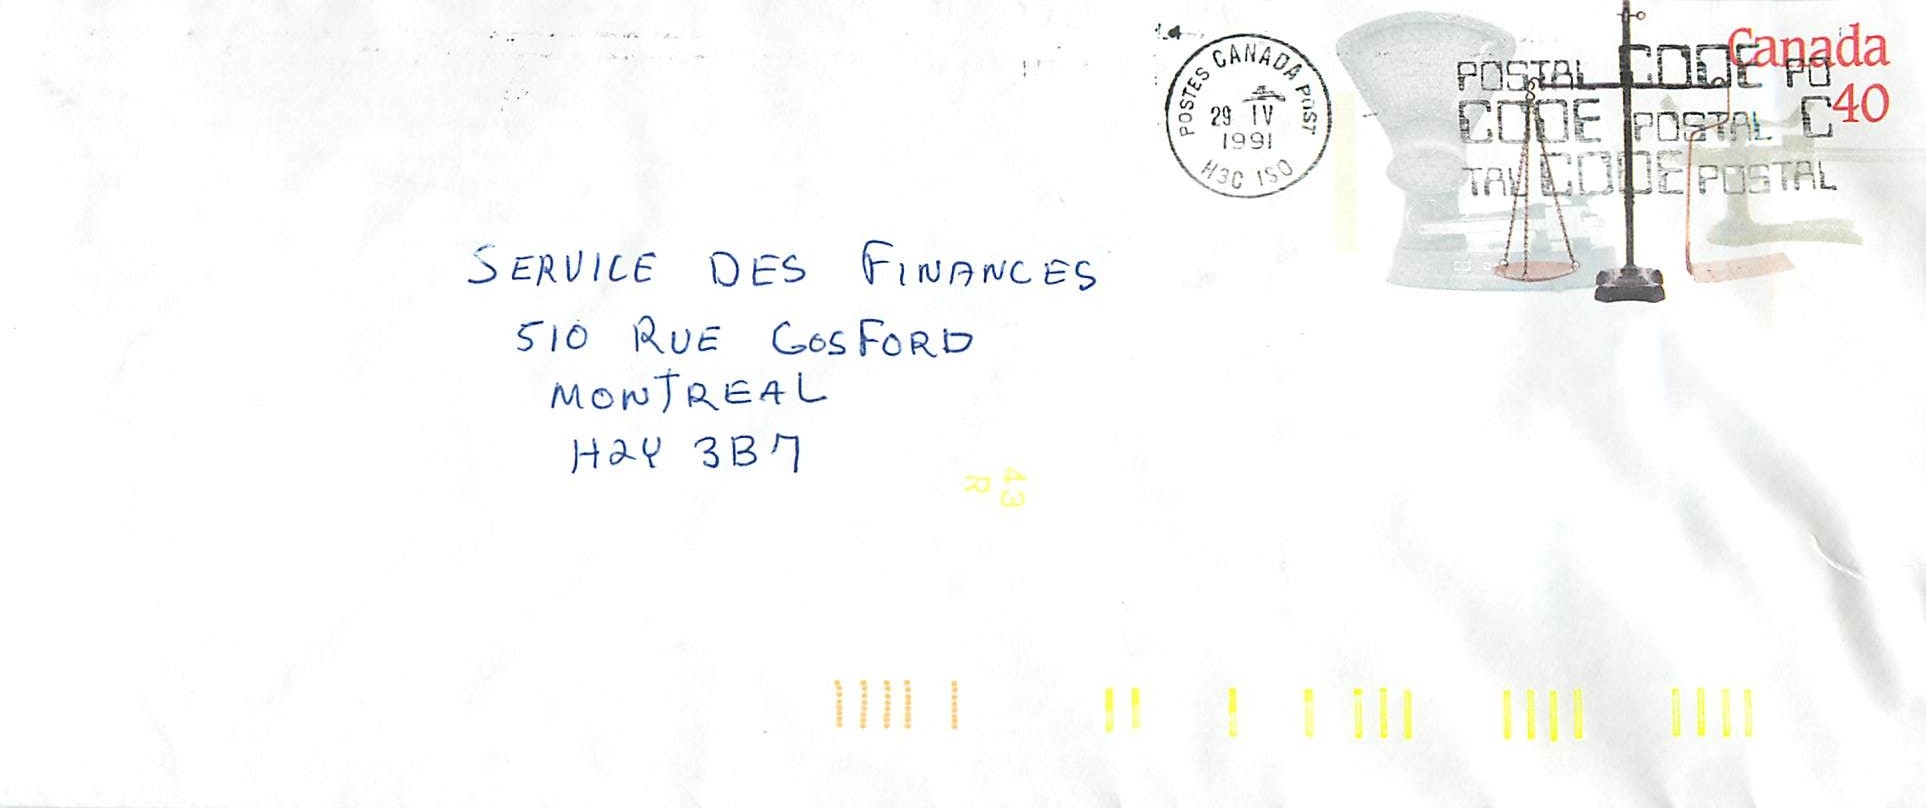 POSTES CANADA POST
29 IV
1991
H3C 1S0
Canada
40
POSTAL CODE PO
CODE POSTAL C
TAL CODE POSTAL
SERVICE DES FINANCES
510 RUE GOSFORD
MONTREAL
H2Y 3B7
43
R